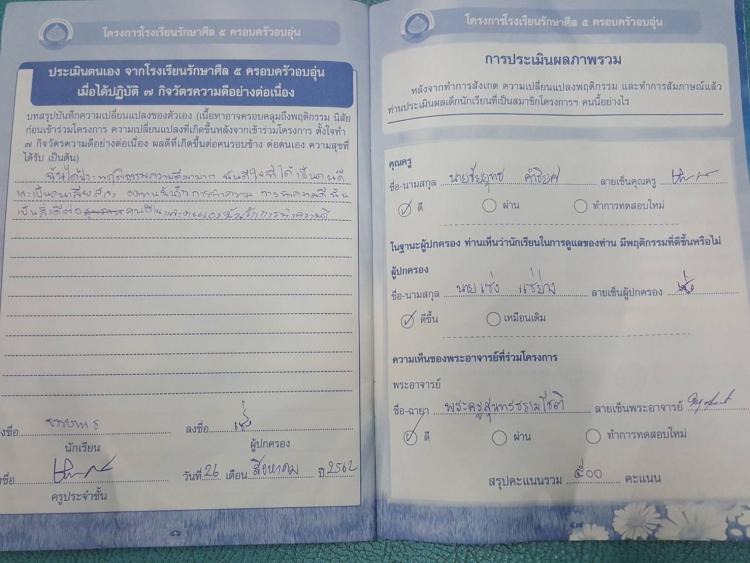 โครงการโรงเรียนรักษาศีล ๕ ครอบครัวอบอุ่น
ประเมินตนเอง จากโรงเรียนรักษาศีล ๕ ครอบครัวอบอุ่น
เมื่อได้ปฏิบัติ ๗ กิจวัตรความดีอย่างต่อเนื่อง
บทสรุปบันทึกความเปลี่ยนแปลงของตัวเอง (เนื้อหาอาจครอบคลุมถึงพฤติกรรม นิสัย
ก่อนเข้าร่วมโครงการ ความเปลี่ยนแปลงที่เกิดขึ้นหลังจากเข้าร่วมโครงการ ตั้งใจทำ
๗ กิจวัตรความดีอย่างต่อเนื่อง ผลดีที่เกิดขึ้นต่อคนรอบข้าง ต่อตนเอง ความสุขที่
ได้รับ เป็นต้น)
ฉันได้ ความดีมามาก ฉันดีใจที่ได้เป็นคนดี
การทำความ
เป็นสิ่งดีต่อ คนอื่น ตนเอง ฉันรักการทำความดี
ลงชื่อ ลงชื่อ เซ่ง
นักเรียน ผู้ปกครอง
ลงชื่อ วันที่ 26 เดือน สิงหาคม ปี 2562
ครูประจำชั้น
โครงการโรงเรียนรักษาศีล ๕ ครอบครัวอบอุ่น
การประเมินผลภาพรวม
หลังจากทำการสังเกต ความเปลี่ยนแปลงพฤติกรรม และทำการสัมภาษณ์แล้ว
ท่านประเมินผลเด็กนักเรียนที่เป็นสมาชิกโครงการฯ คนนี้อย่างไร
คุณครู
ชื่อ-นามสกุล นายชัยยุทธ ลายเซ็นคุณครู
ดี ผ่าน ทำการทดสอบใหม่
ในฐานะผู้ปกครอง ท่านเห็นว่านักเรียนในการดูแลของท่าน มีพฤติกรรมที่ดีขึ้นหรือไม่
ผู้ปกครอง
ชื่อ-นามสกุล นายเซ่ง แซ่ย่าง ลายเซ็นผู้ปกครอง เซ่ง
ดีขึ้น เหมือนเดิม
ความเห็นของพระอาจารย์ที่ร่วมโครงการ
พระอาจารย์
ชื่อ-ฉายา พระครูสุนทรธรรมโชติ ลายเซ็นพระอาจารย์
ดี ผ่าน ทำการทดสอบใหม่
สรุปคะแนนรวม ๕๐๐ คะแนน